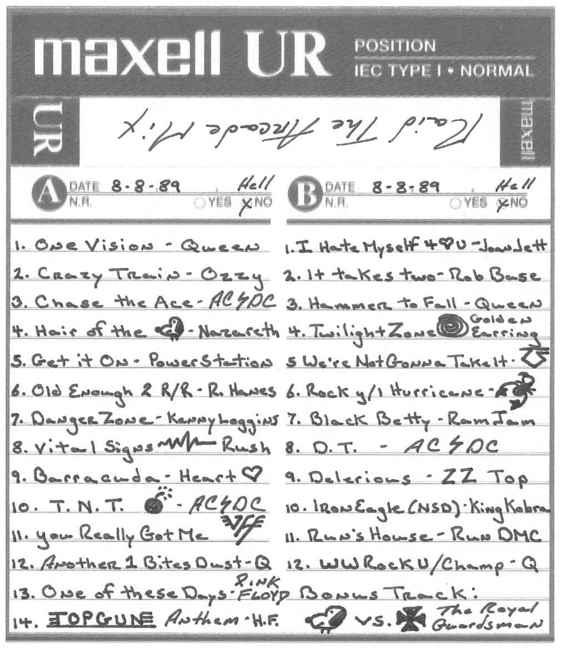 maxell UR
POSITION
IEC TYPE I • NORMAL
UR
Raid The Arcade Mix
maxell
A DATE 8-8-89 Hell
N.R. YES X NO
1. One Vision - Queen
2. Crazy Train - Ozzy
3. Chase the Ace - AC⚡DC
4. Hair of the - Nazareth
5. Get it On - Power Station
6. Old Enough 2 R/R - R. Hanes
7. Danger Zone - Kenny Loggins
8. Vital Signs Rush
9. Barracuda - Heart ♡
10. T.N.T. 💣 - AC⚡DC
11. you Really Got Me
12. Another 1 Bites Dust - Q
13. One of these Days - PINK FLOYD
14. TOPGUN Anthem - H.F.
B DATE 8-8-89 Hell
N.R. YES X NO
1. I Hate Myself 4 ♡ U - Joan Jett
2. It takes two - Rob Base
3. Hammer to Fall - Queen
4. Twilight Zone Golden Earring
5 We're Not Gonna Take It -
6. Rock y/l Hurricane -
7. Black Betty - Ram Jam
8. D.T. - AC⚡DC
9. Delerious - ZZ Top
10. Iron Eagle (NSD) - King Kobra
11. Run's House - Run DMC
12. WW Rock U/Champ - Q
Bonus Track:
vs. The Royal Guardsman